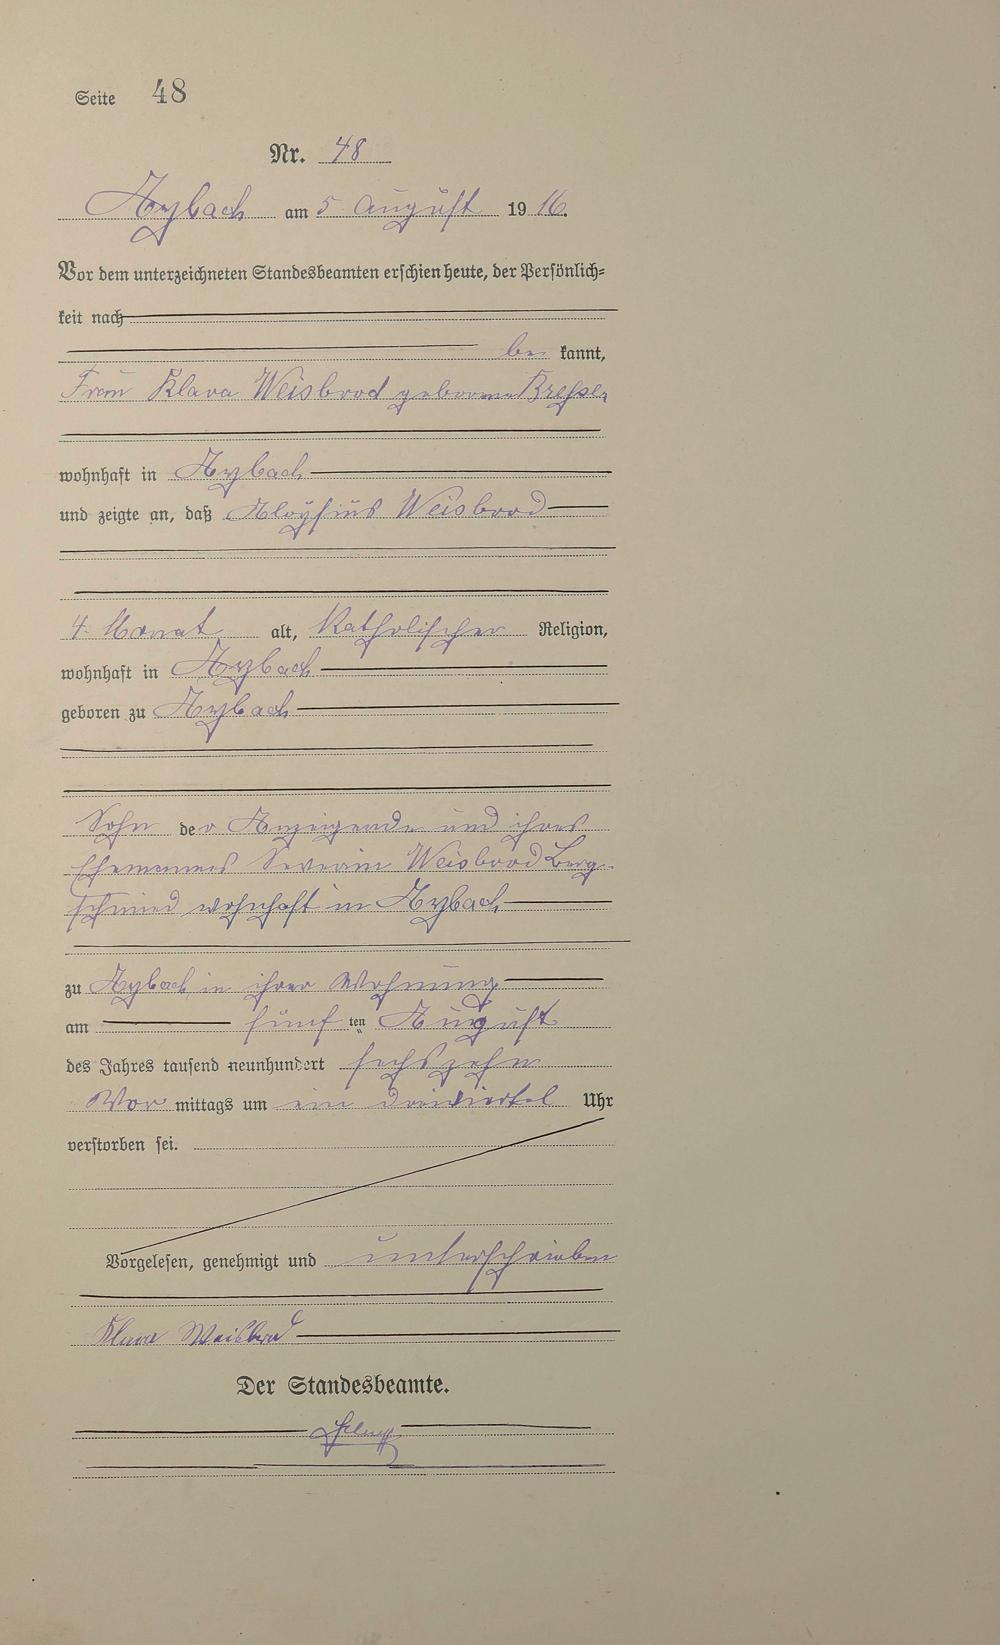 Seite 48
Nr. 48
Aybach am 5 August 1916.
Vor dem unterzeichneten Standesbeamten erschien heute, der Persönlich-
keit nach
be kannt,
Frau Klara Weisbrod geborene
wohnhaft in Aybach
und zeigte an, daß Aloysius Weisbrod
4. Monat alt, Katholischer Religion,
wohnhaft in Aybach
geboren zu Aybach
Sohn der Anzeigende und ihres
Ehemannes Severin Weisbrod Berg-
schmied wohnhaft in Aybach
zu Aybach in ihrer Wohnung
am fünf ten August
des Jahres tausend neunhundert sechszehn
Vor mittags um ein dreiviertel Uhr
verstorben sei.
Vorgelesen, genehmigt und unterschrieben
Klara Weisbrod
Der Standesbeamte.